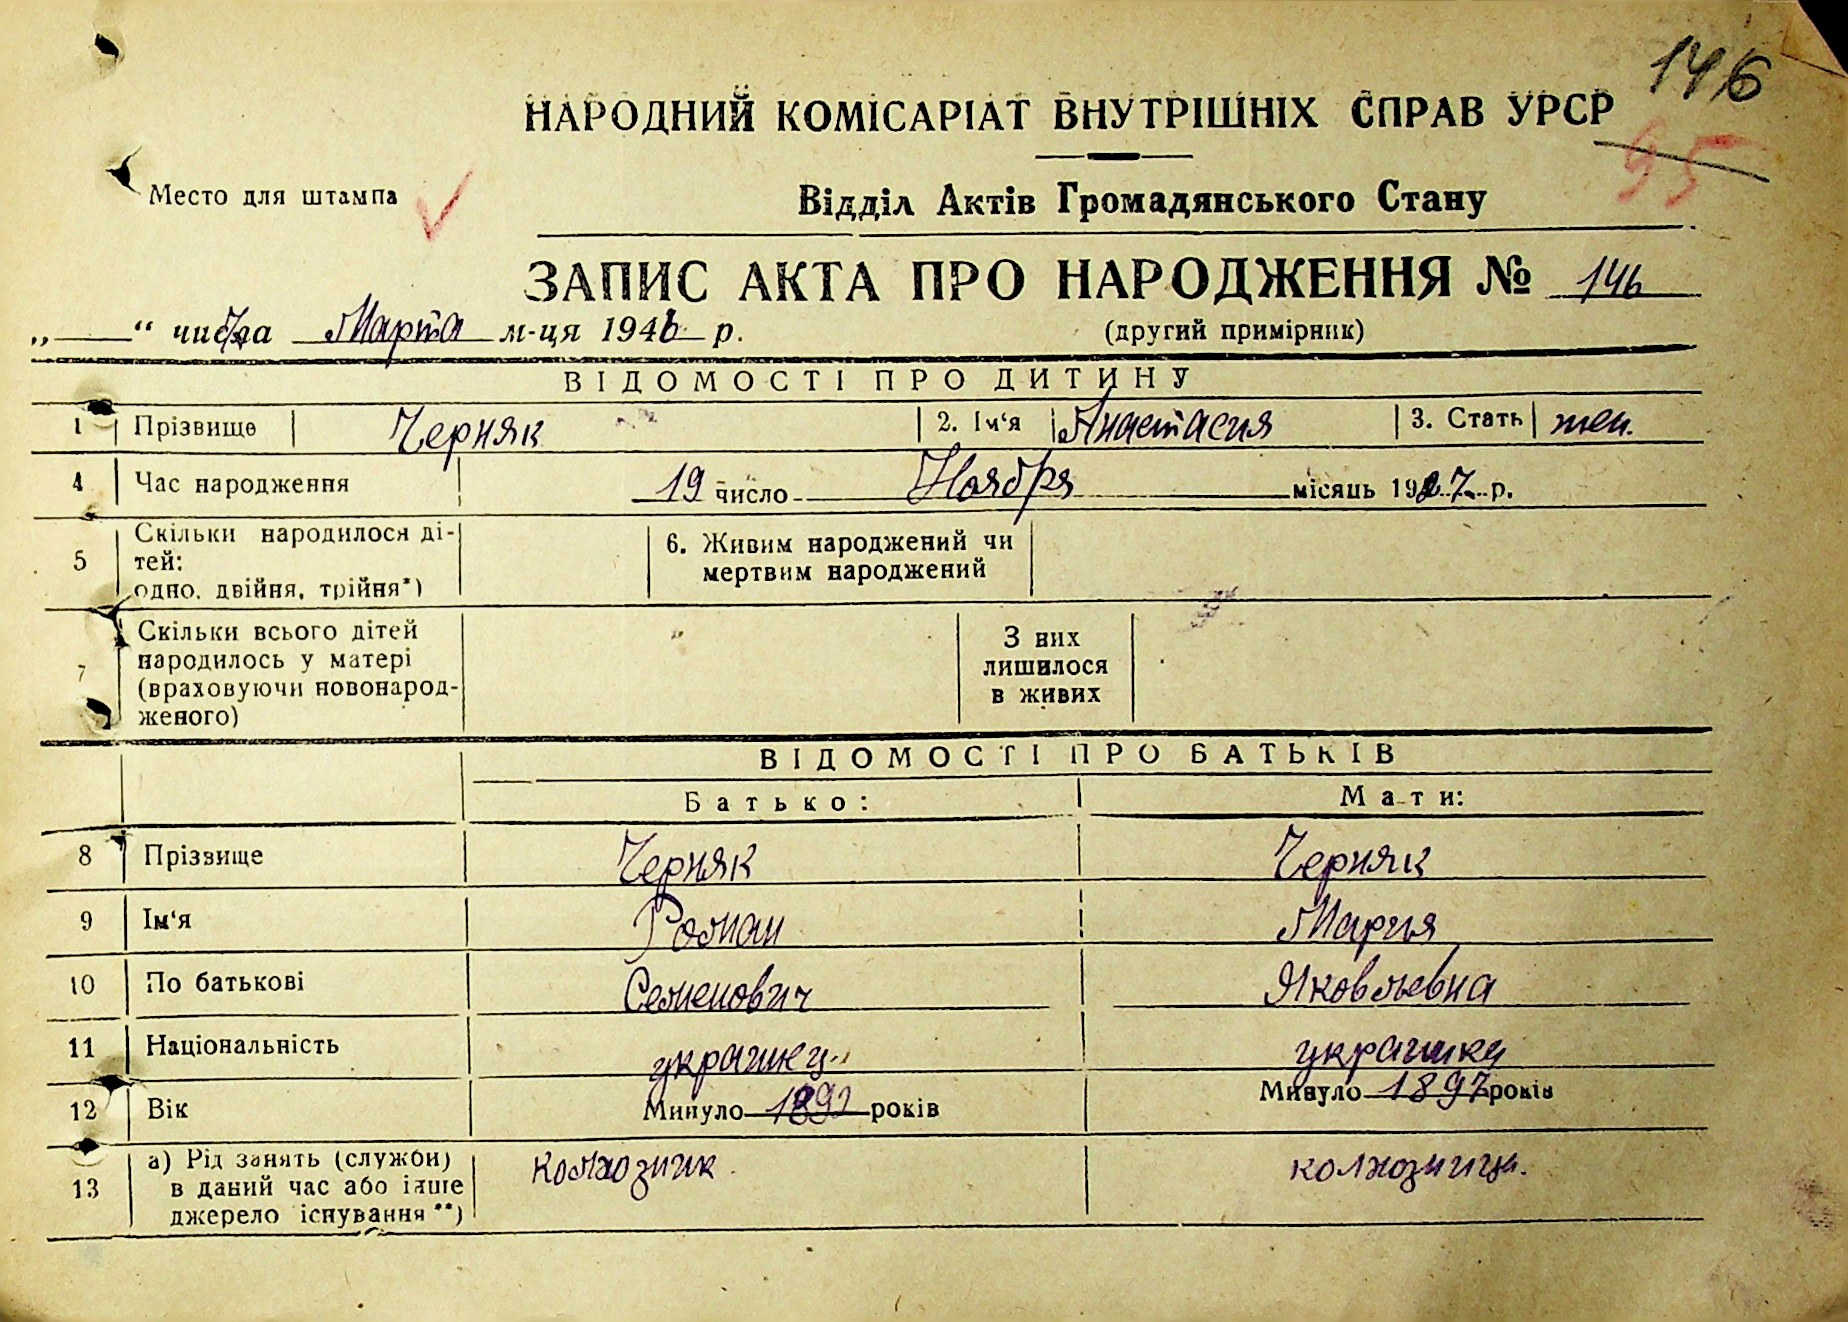 146
НАРОДНИЙ КОМІСАРІАТ ВНУТРІШНІХ СПРАВ УРСР
95
Место для штампа
Відділ Актів Громадянського Стану
ЗАПИС АКТА ПРО НАРОДЖЕННЯ № 146
„ “ числа Марта м-ця 1946 р.
(другий примірник)
ВІДОМОСТІ ПРО ДИТИНУ
1 Прізвище Черняк 2. Ім‘я Анастасия 3. Стать жен.
4 Час народження 19 число Ноября місяць 1927 р.
5 Скільки народилося ді-
тей:
одно, двійня, трійня*)
6. Живим народжений чи
мертвим народжений
7 Скільки всього дітей
народилось у матері
(враховуючи новонарод-
женого)
З них
лишилося
в живих
ВІДОМОСТІ ПРО БАТЬКІВ
Батько: Мати:
8 Прізвище Черняк Черняк
9 Ім‘я Роман Мария
10 По батькові Семенович Яковлевна
11 Національність украинец украинка
12 Вік Минуло років Минуло 1897 років
13 а) Рід занять (служби)
в даний час або інше
джерело існування **)
колхозник колхозница.